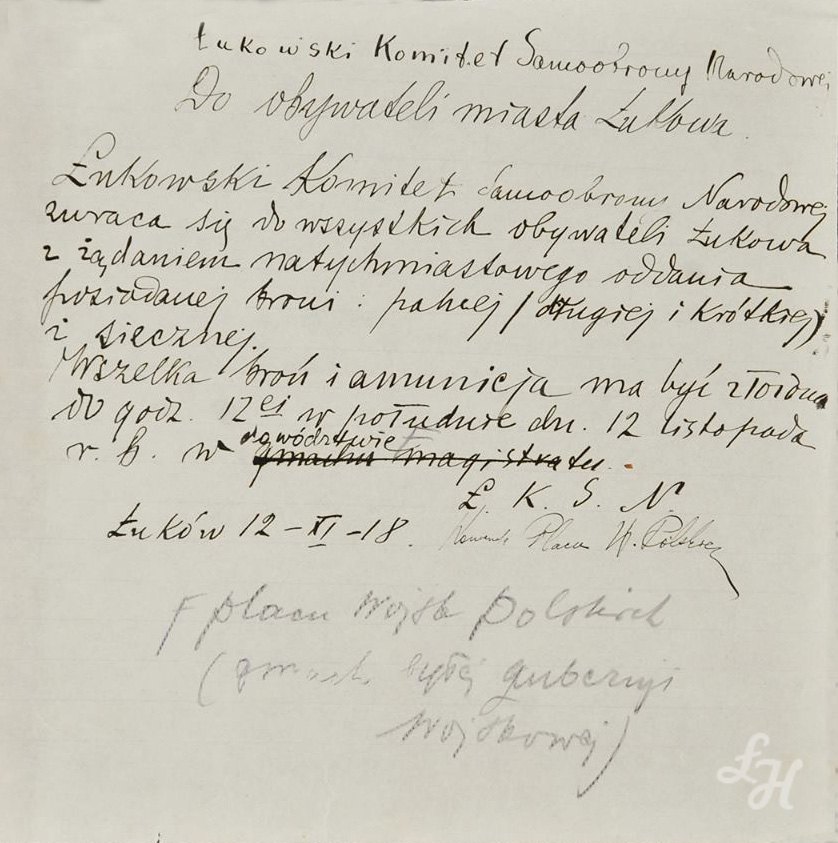 Łukowski Komitet Samoobrony Narodowej
Do obywateli miasta Łukowa.
Łukowski Komitet Samoobrony Narodowej
zwraca się do wszystkich obywateli Łukowa
z żądaniem natychmiastowego oddania
posiadanej broni: palnej (długiej i krótkiej)
i siecznej.
Wszelka broń i amunicja ma być złożona
do godz. 12ej w południe dn. 12 listopada
dowództwie F
r. b. w gmachu magistratu.
Ł. K. S. N.
Łuków 12-XI-18. Placu W. Polskich
F placu Wojsk Polskich
(gmach byłej gubernji
Wojskowej)
ŁH